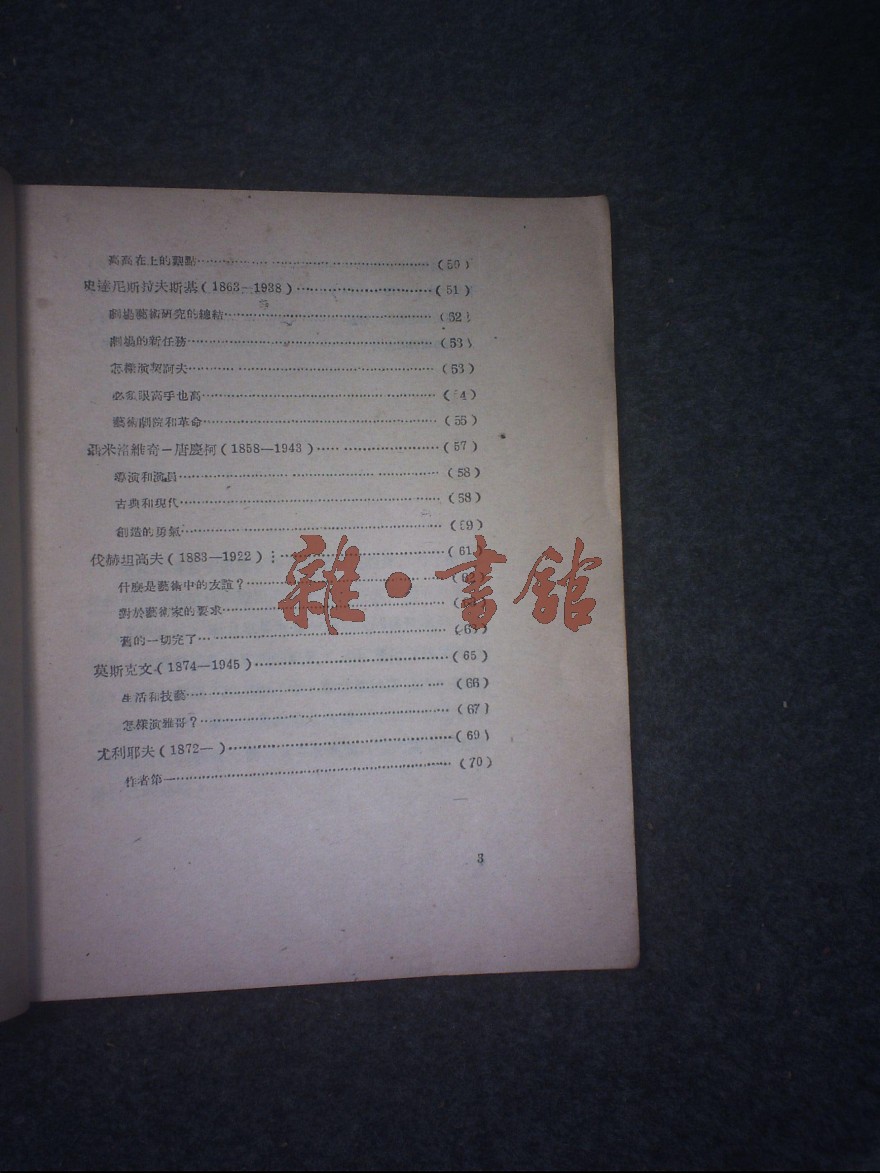 高高在上的觀點……(50)
史達尼斯拉夫斯基(1863—1938)……(51)
劇場藝術研究的總結……(52)
劇場的新任務……(53)
怎樣演契訶夫……(53)
必須眼高手也高……(54)
藝術劇院和革命……(55)
聶米洛維奇—唐慶柯(1858—1943)……(57)
導演和演員……(58)
古典和現代……(58)
創造的勇氣……(59)
伐赫坦高夫(1883—1922)……(61)
什麼是藝術中的友誼?……(62)
對於藝術家的要求……
舊的一切完了……(63)
莫斯克文(1874—1945)……(65)
生活和技藝……(66)
怎樣演雅哥?……(67)
尤利耶夫(1872—)……(69)
作者第一……(70)
3
雜·書館